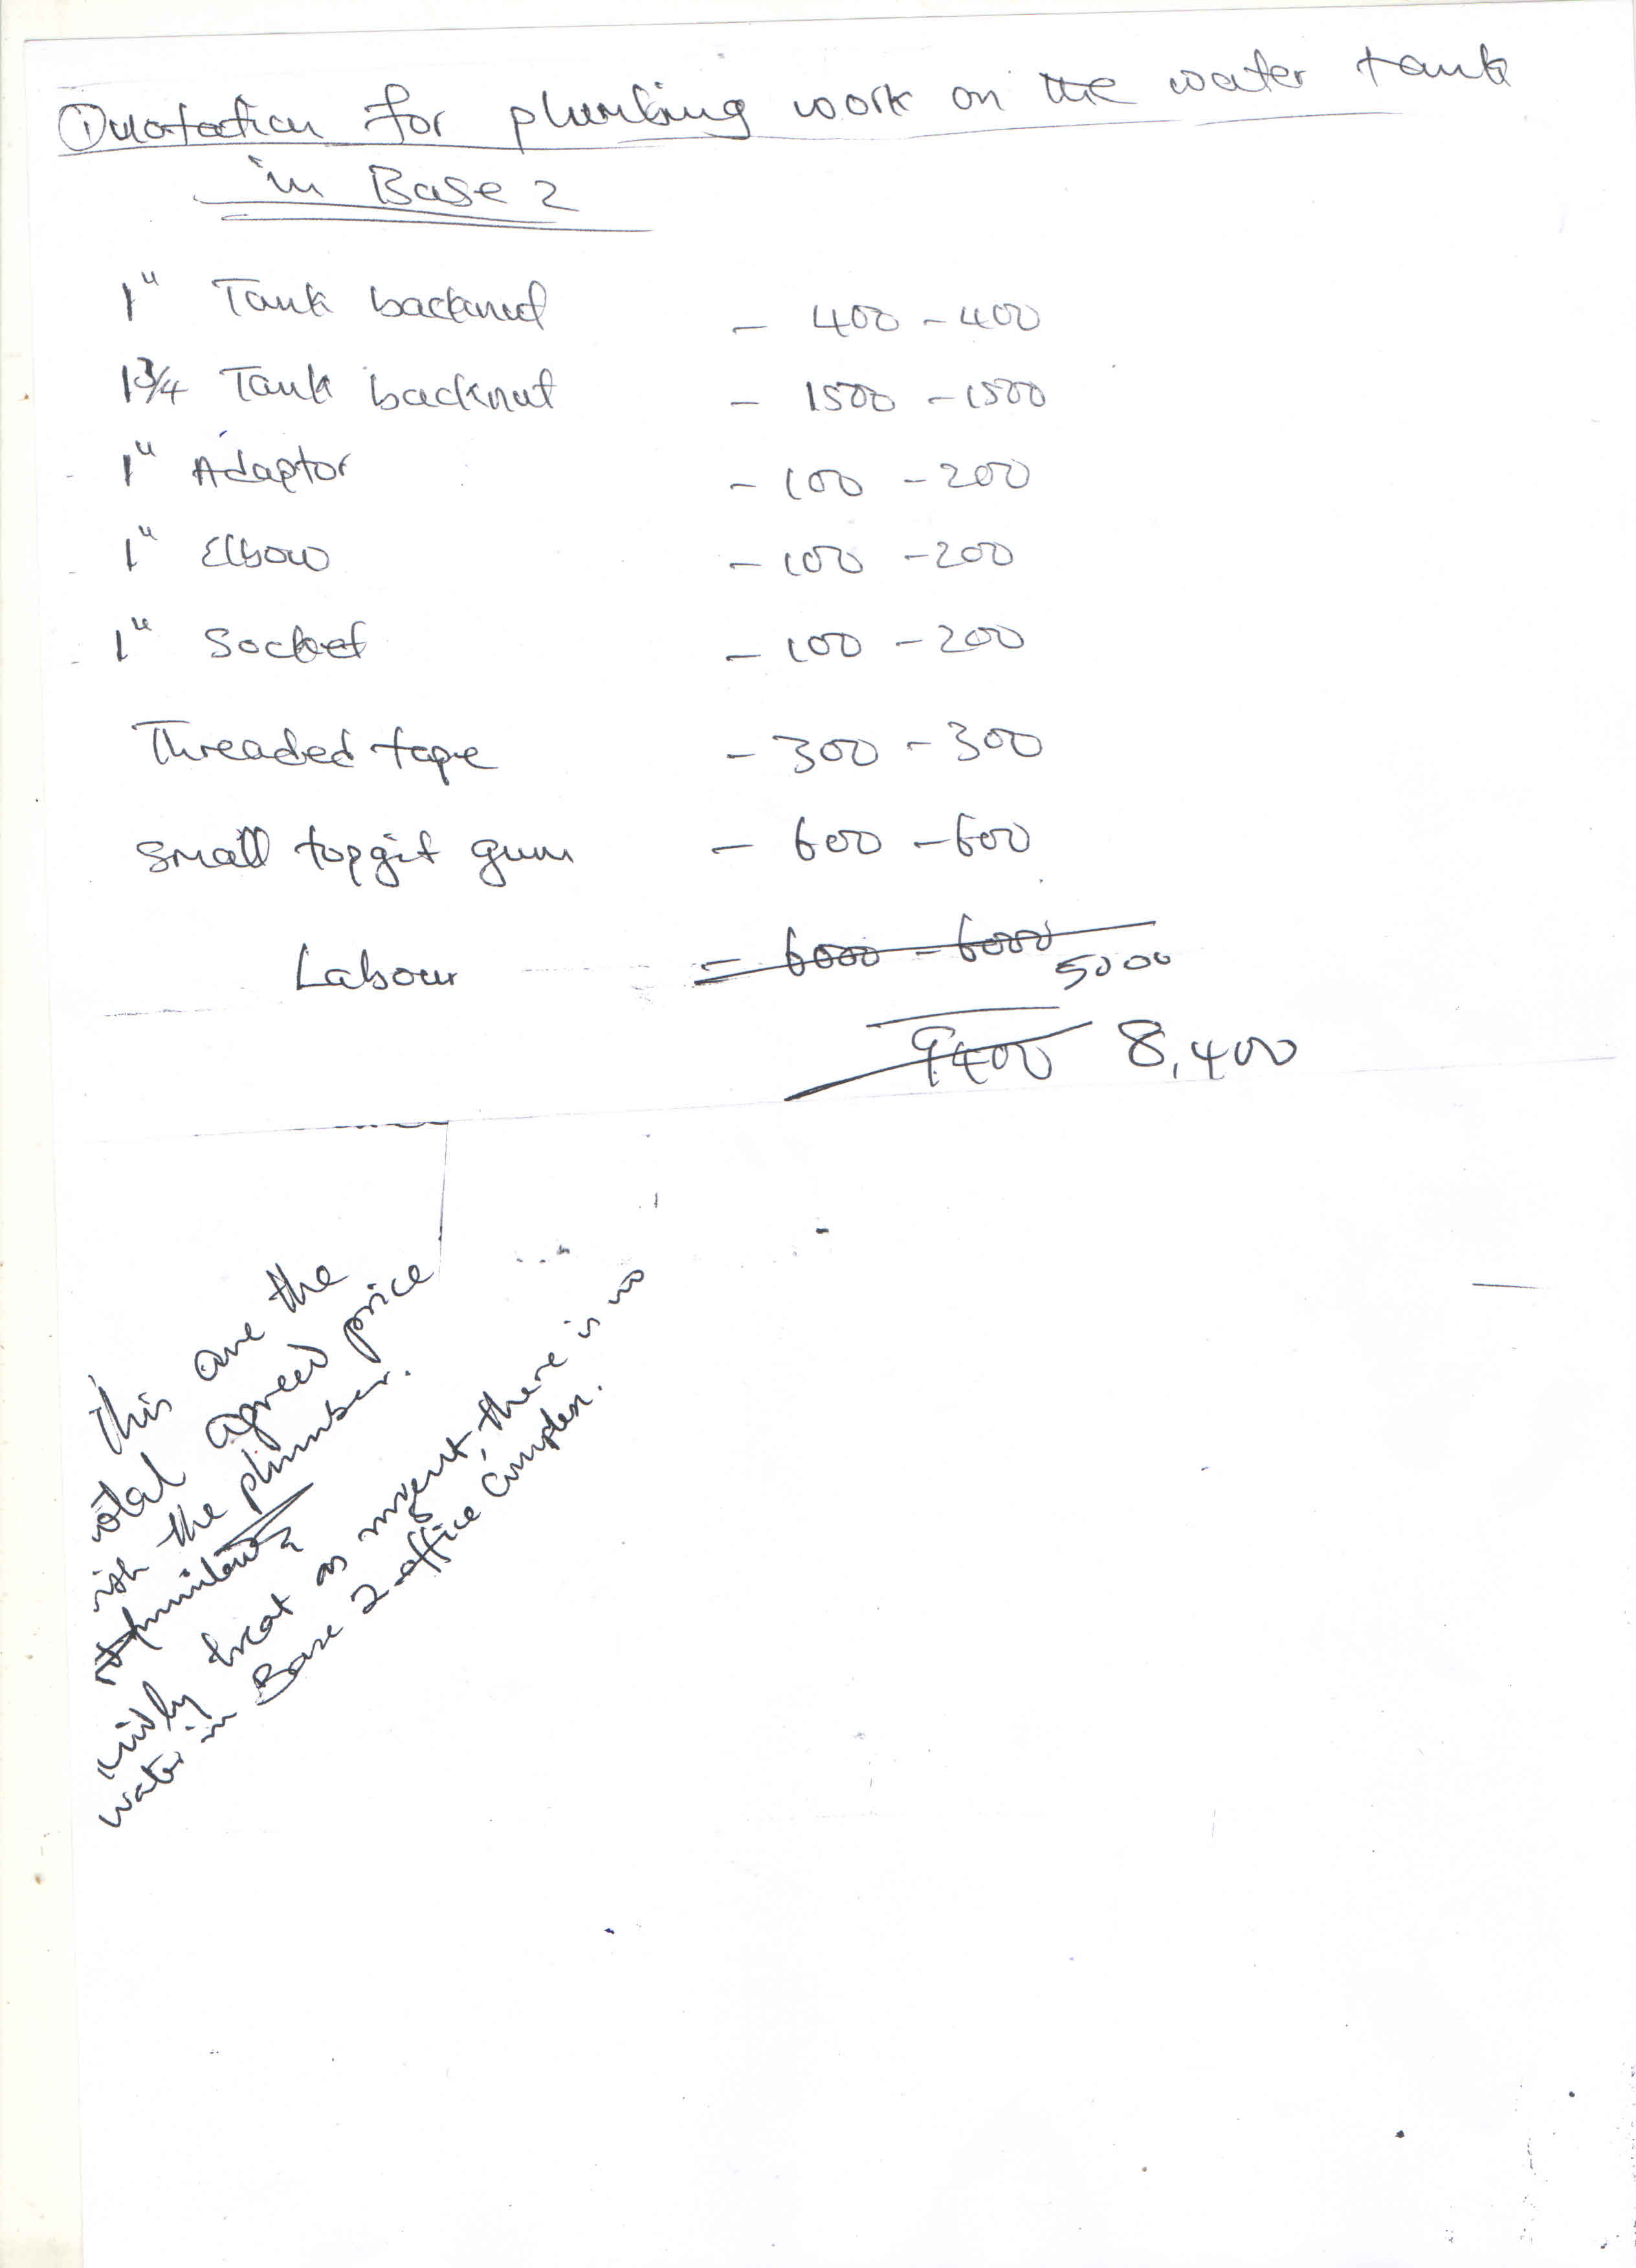 Quotation for plumbing work on the water tank
in Base 2
1" Tank backnut - 400 - 400
1 3/4 Tank backnut - 1500 - 1500
1" Adaptor - 100 - 200
1" Elbow - 100 - 200
1" Socket - 100 - 200
Threaded tape - 300 - 300
Small topgit gum - 600 - 600
Labour - 6000 - 6000 5000
9400 8,400
this are the
total agreed price
with the plumber.
kindly treat as urgent, there is no
water in Base 2 office complex.